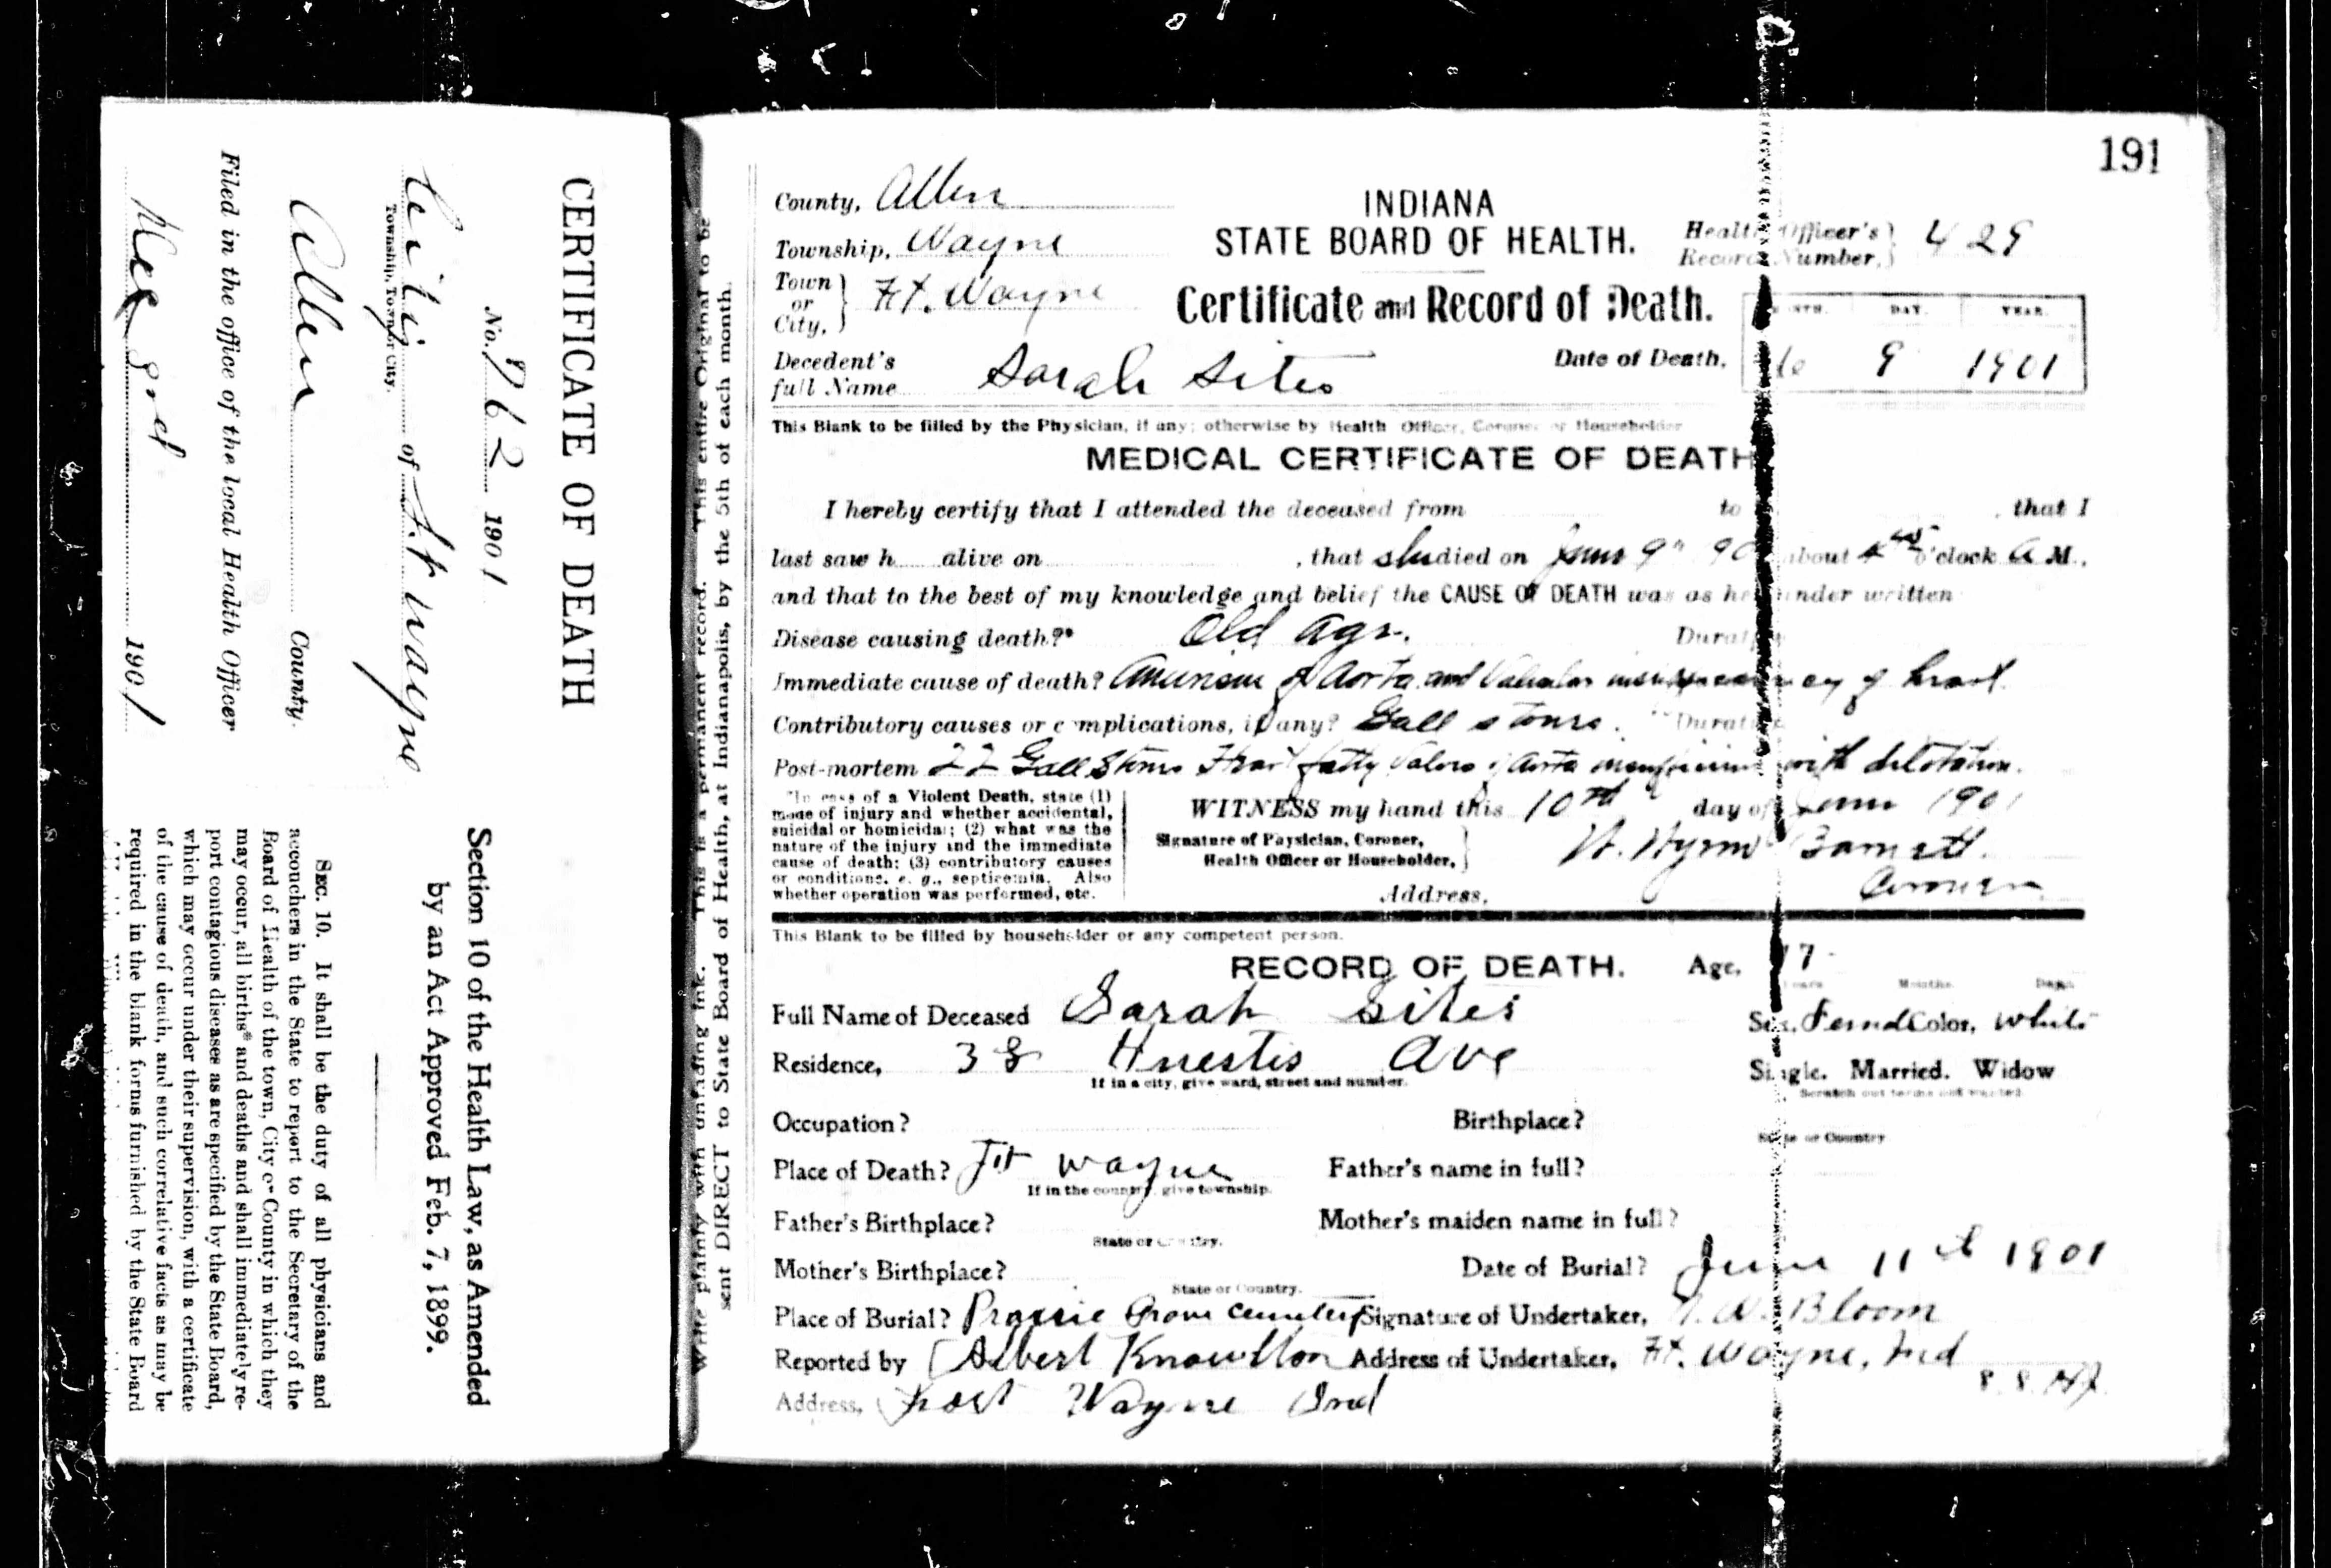 CERTIFICATE OF DEATH
No. 762 1901
City of Ft Wayne
Township, Town or City.
Allen County.
Filed in the office of the local Health Officer
1901
Section 10 of the Health Law, as Amended
by an Act Approved Feb. 7, 1899.
SEC. 10. It shall be the duty of all physicians and
accouchers in the State to report to the Secretary of the
Board of Health of the town, City or County in which they
may occur, all births* and deaths and shall immediately re-
port contagious diseases as are specified by the State Board,
which may occur under their supervision, with a certificate
of the cause of death, and such correlative facts as may be
required in the blank forms furnished by the State Board
Write plainly with unfading ink. This is a permanent record. This entire Original to be
sent DIRECT to State Board of Health, at Indianapolis, by the 5th of each month.
191
County, Allen
INDIANA
Township, Wayne
STATE BOARD OF HEALTH.
Health Officer's Record Number, 429
Town or City, Ft. Wayne
Certificate and Record of Death.
MONTH. DAY. YEAR.
Decedent's full Name Sarah Sites
Date of Death, 6 9 1901
This Blank to be filled by the Physician, if any; otherwise by Health Officer, Coroner or Householder
MEDICAL CERTIFICATE OF DEATH
I hereby certify that I attended the deceased from to , that I
last saw h alive on , that she died on June 9" 90 about 4 o'clock A M.,
and that to the best of my knowledge and belief the CAUSE OF DEATH was as hereunder written
Disease causing death?* Old Age. Duration
Immediate cause of death? Aneurism of Aorta and Valvular insufficiency of heart
Contributory causes or complications, if any? Gall stones. Duration
Post-mortem 22 Gall Stones Heart fatty Valves of Aorta with dilatation.
*In case of a Violent Death, state (1)
mode of injury and whether accidental,
suicidal or homicidal; (2) what was the
nature of the injury and the immediate
cause of death; (3) contributory causes
or conditions, e. g., septicemia. Also
whether operation was performed, etc.
WITNESS my hand this 10th day of June 1901
Signature of Physician, Coroner,
Health Officer or Householder, Barnett.
Address, Coroner
This Blank to be filled by householder or any competent person.
RECORD OF DEATH. Age, 77
Years Months Days
Full Name of Deceased Sarah Sites
Sex, Femal Color, White
Residence, 38 Huestis Ave
If in a city, give ward, street and number.
Single. Married. Widow
Scratch out terms not wanted
Occupation? Birthplace?
State or Country
Place of Death? Ft Wayne Father's name in full?
If in the country, give township.
Father's Birthplace? Mother's maiden name in full?
State or Country.
Mother's Birthplace? Date of Burial? June 11th 1901
State or Country.
Place of Burial? Prairie Grove Cemetery Signature of Undertaker, Bloom
Reported by Albert Knowlton Address of Undertaker, Ft. Wayne, Ind
Address, Fort Wayne Ind